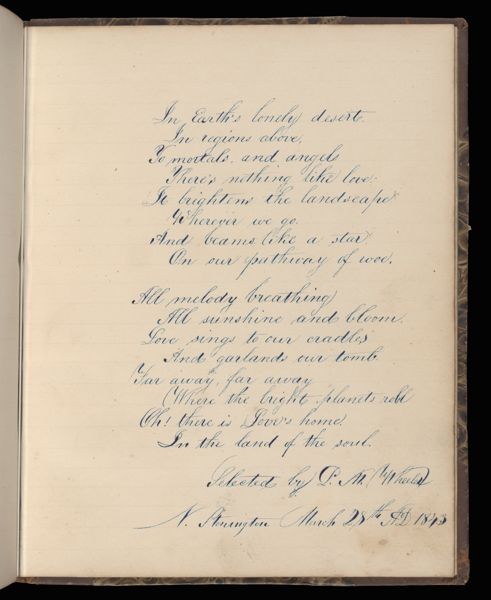 In Earth's lonely desert.
In regions above,
To mortals, and angels
There's nothing like love.
It brightens the landscape
Wherever we go.
And beams like a star
On our pathway of woe.
All melody breathing
All sunshine and bloom.
Love sings to our cradles
And garlands our tomb
Far away, far away
Where the bright planets roll
Oh! there is Love's home
In the land of the soul.
Selected by P. M. Wheeler
N. Stonington March 28th AD 1843